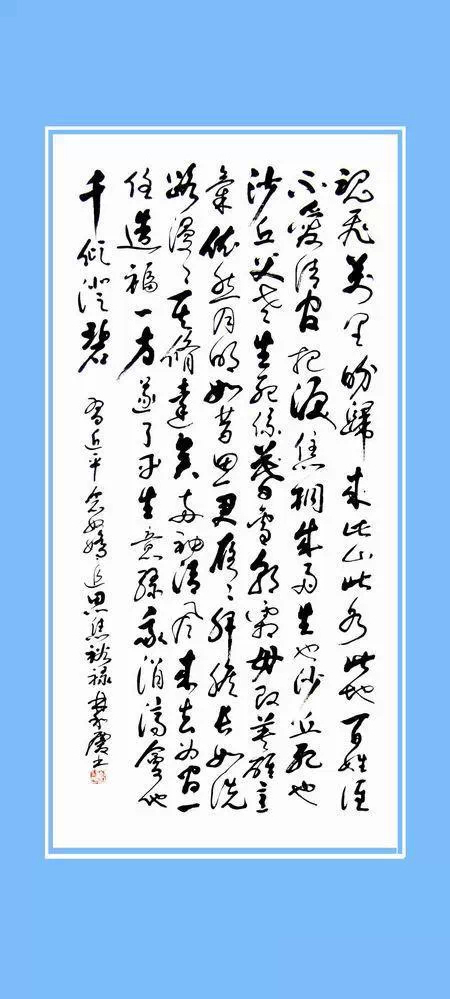 魂飛萬里盼歸来此山此水此地百姓谁
不愛清官把淚焦桐成雨生也沙丘死也
沙丘父老生死系暮雪朝霜毋改英雄意
氣依然月明如昔思君夜々肝胆長如洗
路漫々其脩遠矣两袖清風来去为官一
任造福一方遂了平生意绿我涓滴會他
千顷澄碧
习近平念奴嬌追思焦裕禄